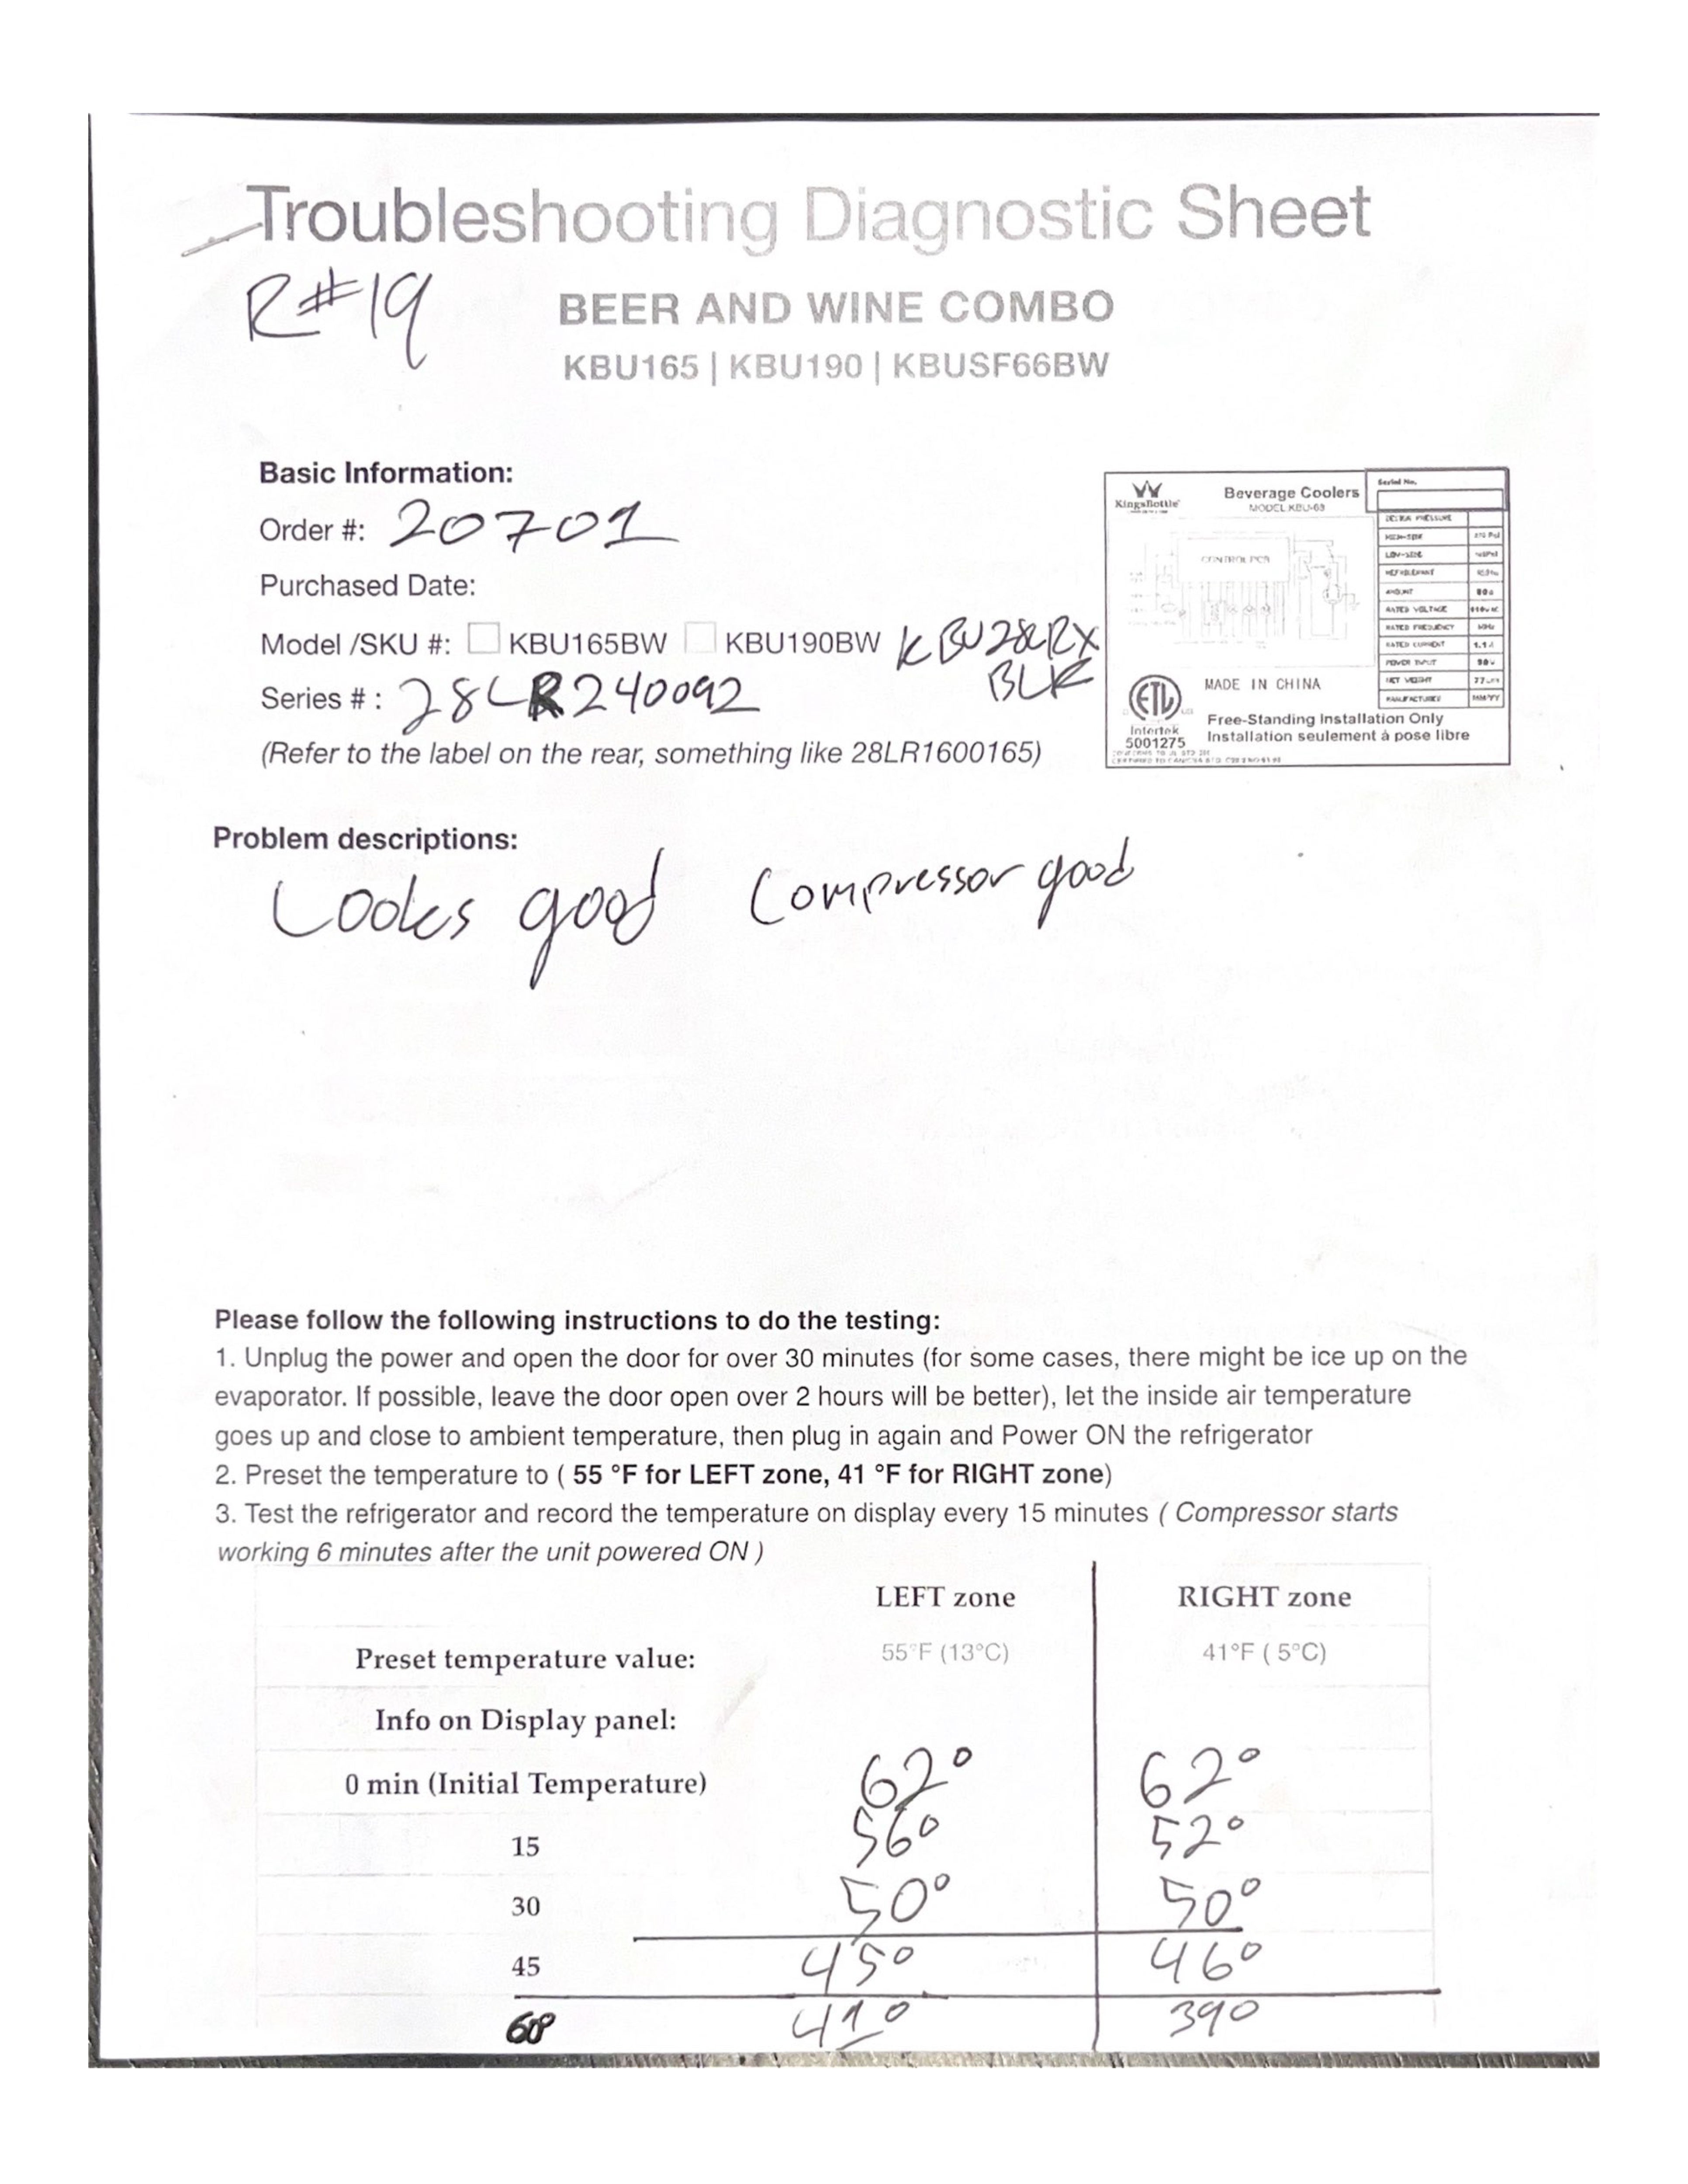 Troubleshooting Diagnostic Sheet
R#19
BEER AND WINE COMBO
KBU165 | KBU190 | KBUSF66BW
Basic Information:
Order #: 20701
Purchased Date:
Model /SKU #: KBU165BW KBU190BW KBU28LRX
BLK
Series # : 28LR240092
(Refer to the label on the rear, something like 28LR1600165)
KingsBottle
Beverage Coolers
MODEL KBU-63
Serial No.
CONTROL PCB
HIGH-SIDE
LOW-SIDE
REFRIGERANT
AMOUNT 80g
RATED VOLTAGE
RATED FREQUENCY
RATED CURRENT
POWER INPUT
NET WEIGHT
MANUFACTURED
ETL
MADE IN CHINA
Intertek
5001275
Free-Standing Installation Only
Installation seulement à pose libre
Problem descriptions:
Looks good Compressor good
Please follow the following instructions to do the testing:
1. Unplug the power and open the door for over 30 minutes (for some cases, there might be ice up on the
evaporator. If possible, leave the door open over 2 hours will be better), let the inside air temperature
goes up and close to ambient temperature, then plug in again and Power ON the refrigerator
2. Preset the temperature to ( 55 °F for LEFT zone, 41 °F for RIGHT zone)
3. Test the refrigerator and record the temperature on display every 15 minutes ( Compressor starts
working 6 minutes after the unit powered ON )
LEFT zone RIGHT zone
Preset temperature value: 55°F (13°C) 41°F ( 5°C)
Info on Display panel:
0 min (Initial Temperature) 62° 62°
15 56° 52°
30 50° 50°
45 45° 46°
60 41° 39°